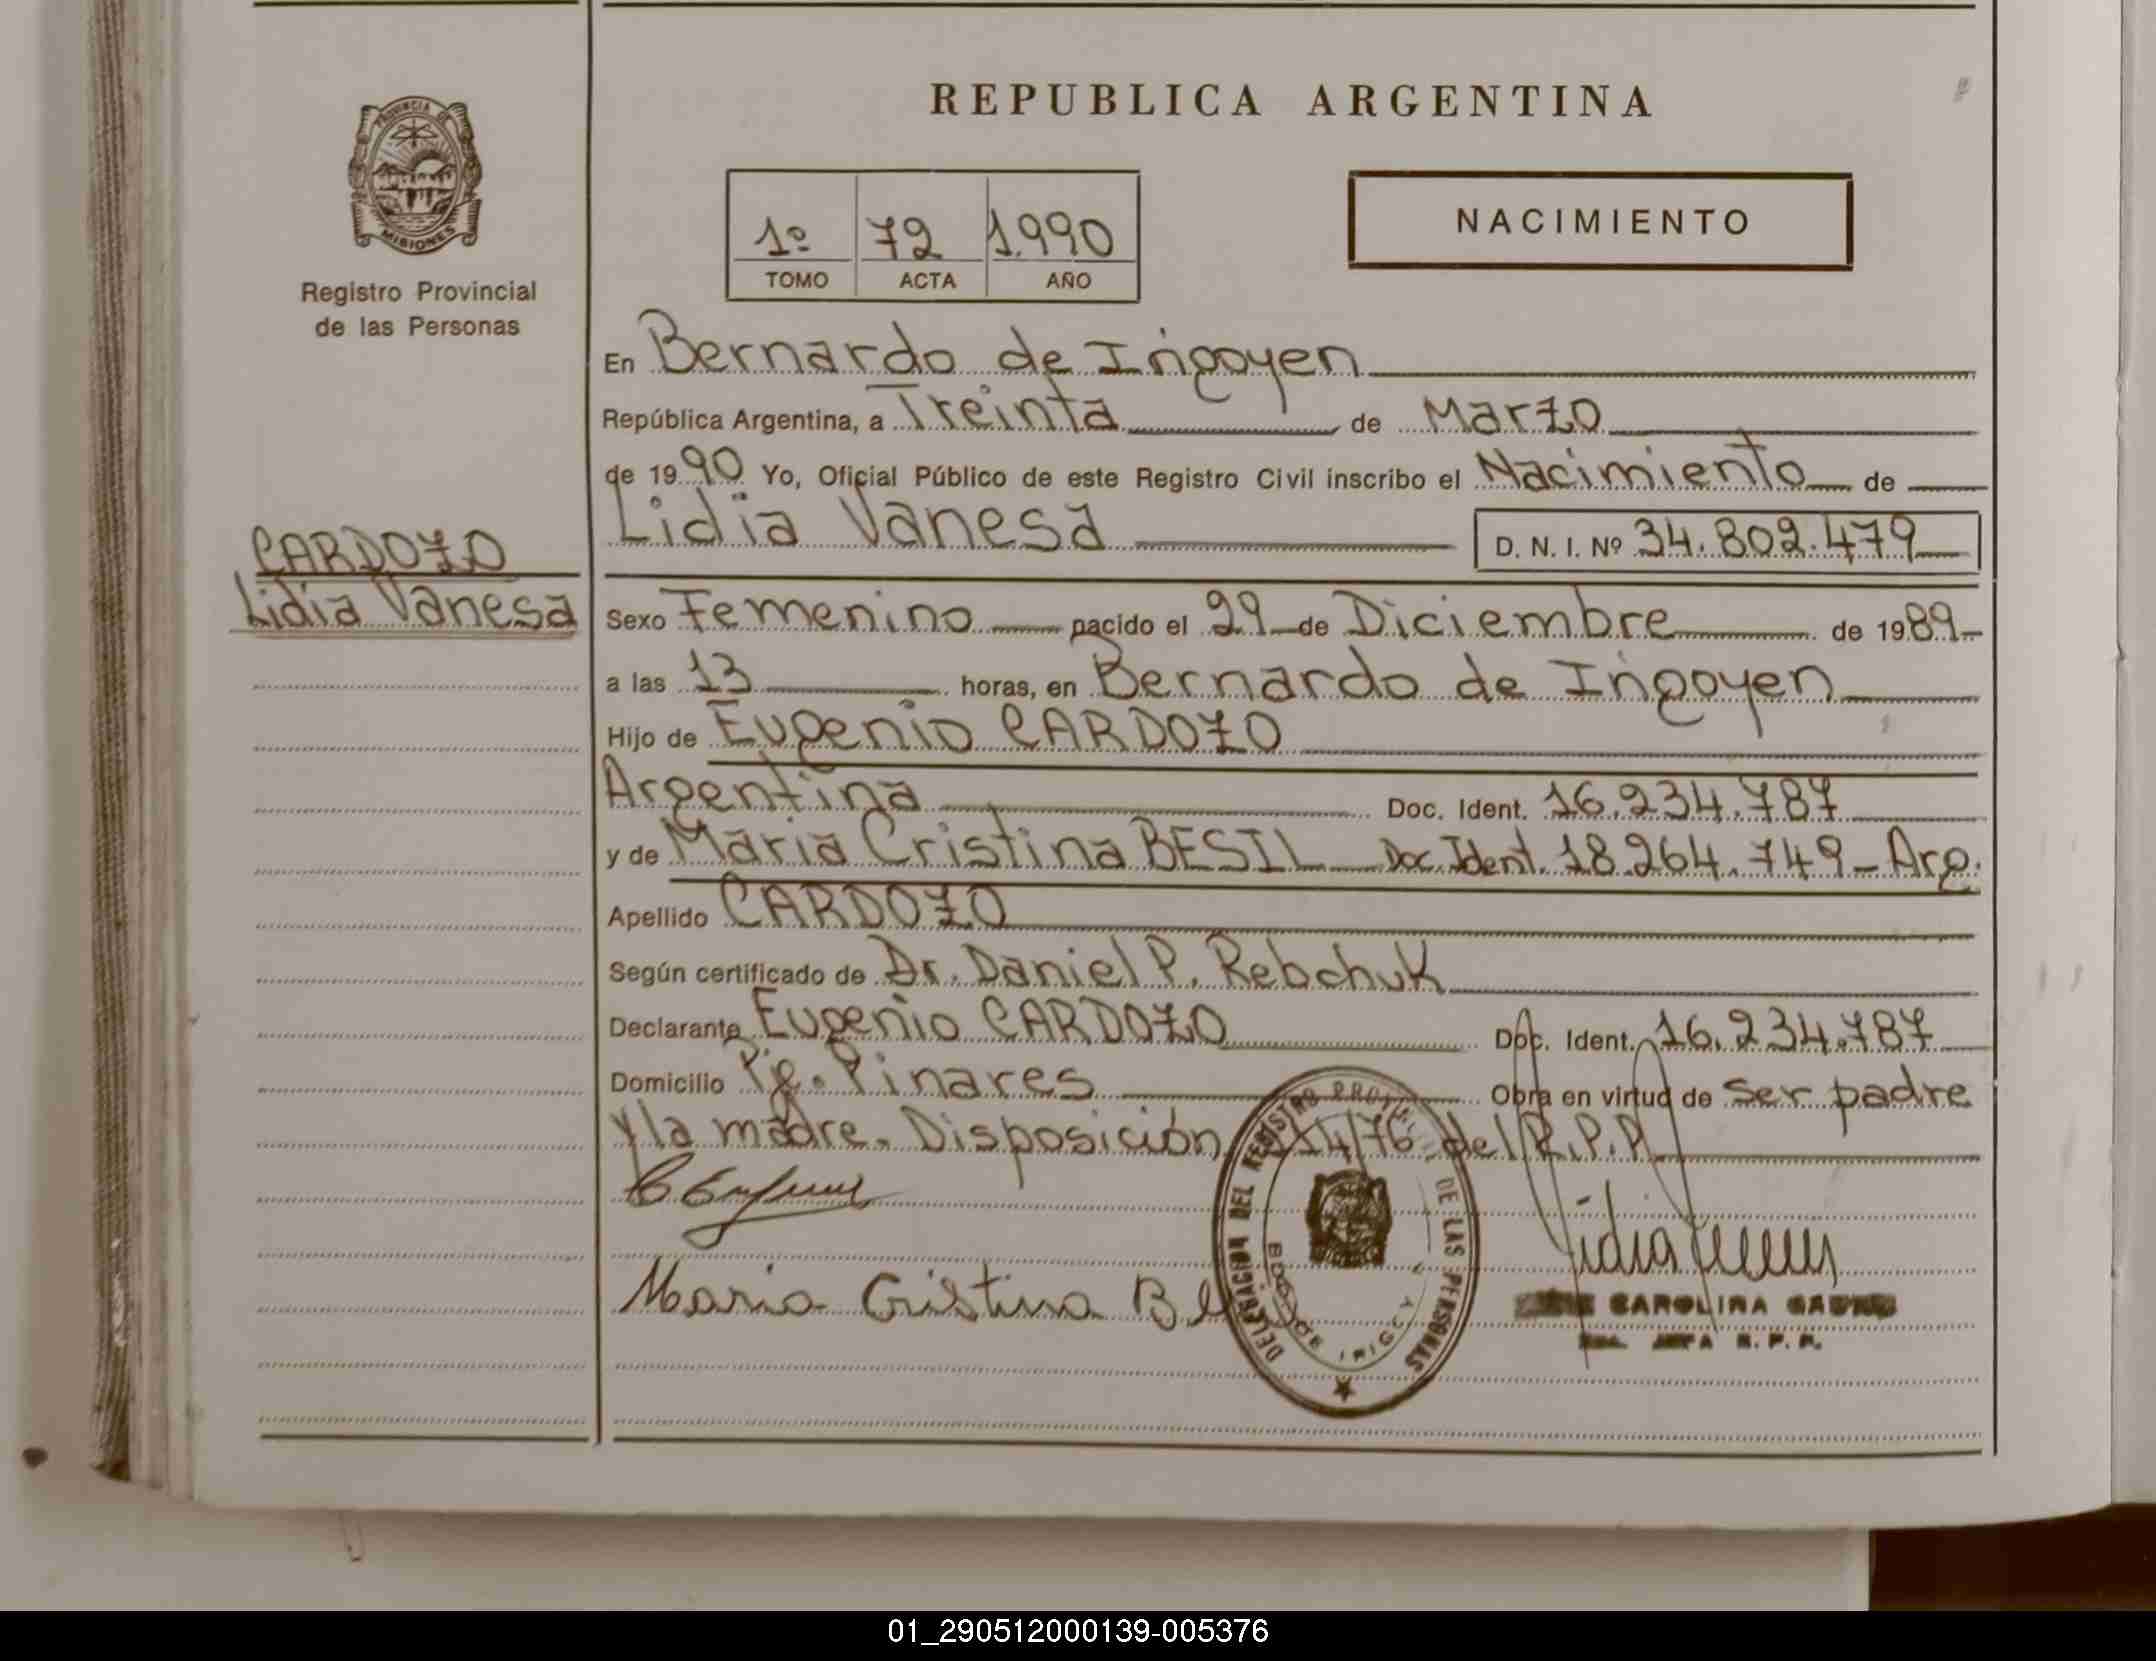 REPUBLICA ARGENTINA
PROVINCIA DE
MISIONES
Registro Provincial
de las Personas
1º 72 1.990
TOMO ACTA AÑO
NACIMIENTO
En Bernardo de Irigoyen
República Argentina, a Treinta de Marzo
de 1990 Yo, Oficial Público de este Registro Civil inscribo el Nacimiento de
Lidia Vanesa D. N. I. Nº 34.802.479
CARDOZO
Lidia Vanesa
Sexo Femenino nacido el 29 de Diciembre de 1989
a las 13 horas, en Bernardo de Irigoyen
Hijo de Eugenio CARDOZO
Argentina Doc. Ident. 16.234.787
y de Maria Cristina BESIL Doc. Ident. 18.264.749 - Arg.
Apellido CARDOZO
Según certificado de Dr. Daniel P. Rebchuk
Declarante Eugenio CARDOZO Doc. Ident. 16.234.787
Domicilio Pje. Pinares Obra en virtud de ser padre
y la madre. Disposición 14/76 del R.P.P.
Maria Cristina
DELEGACION DEL REGISTRO PROVINCIAL DE LAS PERSONAS
BDO. DE IRIGOYEN
Lidia
CAROLINA
JEFA R. P. P.
01_290512000139-005376